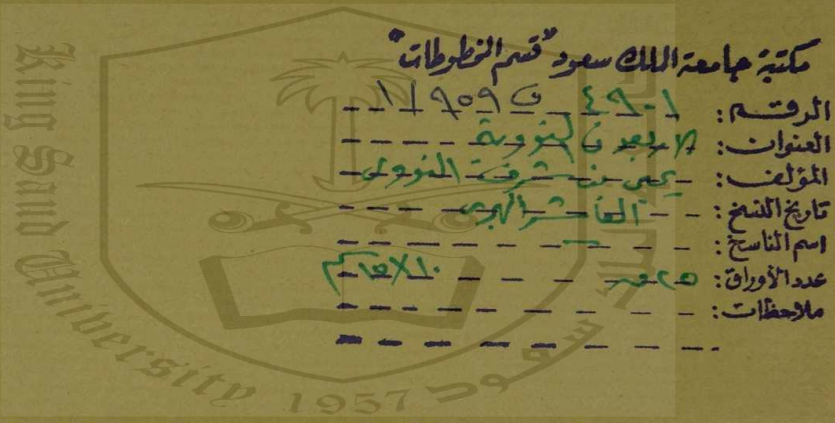 مكتبة جامعة الملك سعود "قسم المخطوطات"
الرقم: ٤٩٠١ ف ١١٩٥٩
العنوان: الأربعون النووية
المؤلف: يحيى بن شرف النووي
تاريخ النسخ: العاشر الهجري
اسم الناسخ:
عدد الأوراق: ٢٥ ق
ملاحظات:
King Saud University
1957